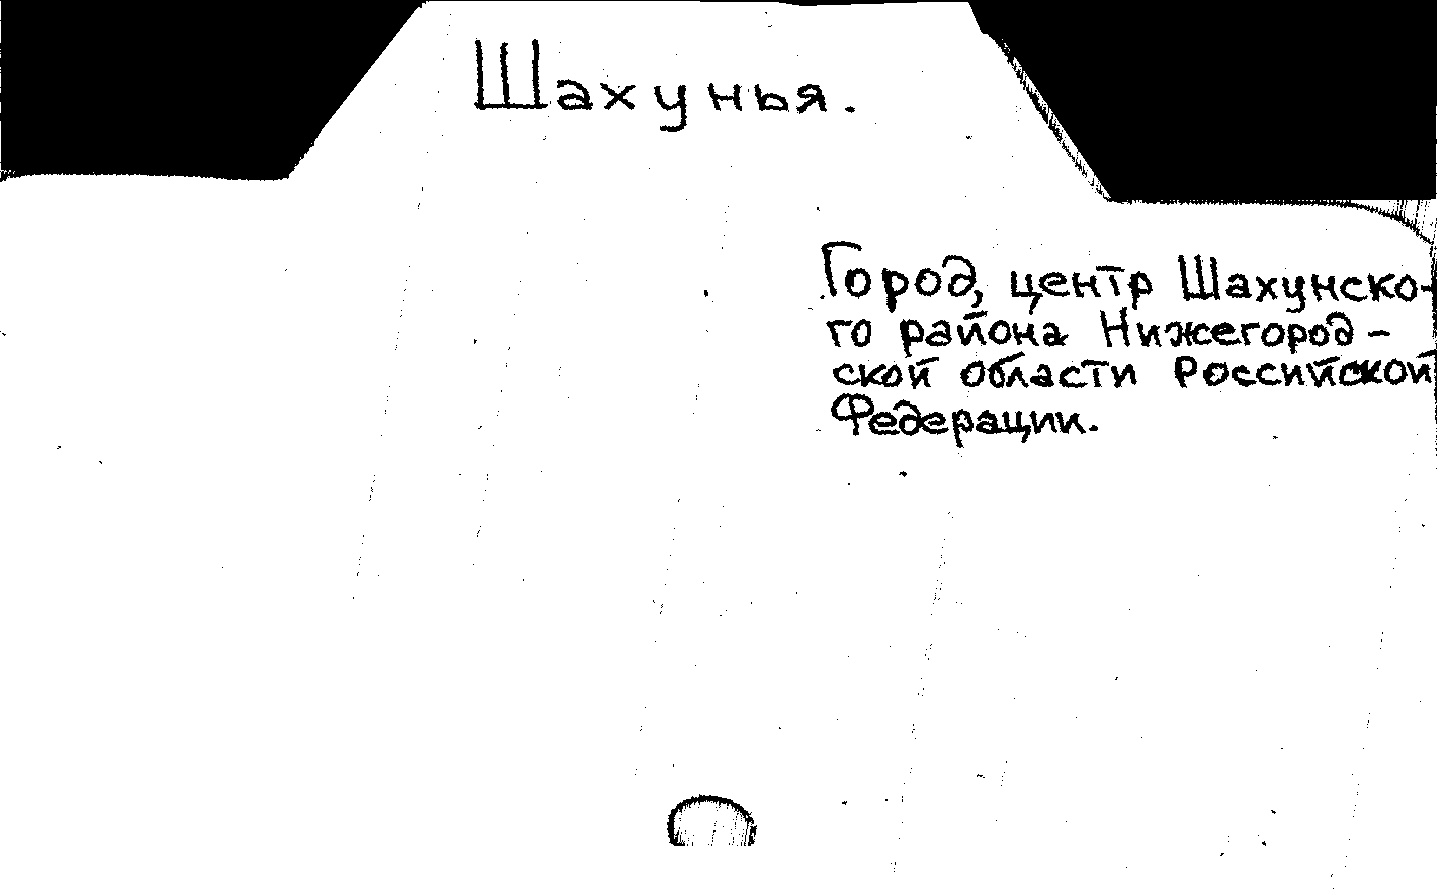 Шахунья.
Город, центр Шахунско-
го района Нижегород-
ской области Российской
Федерации.